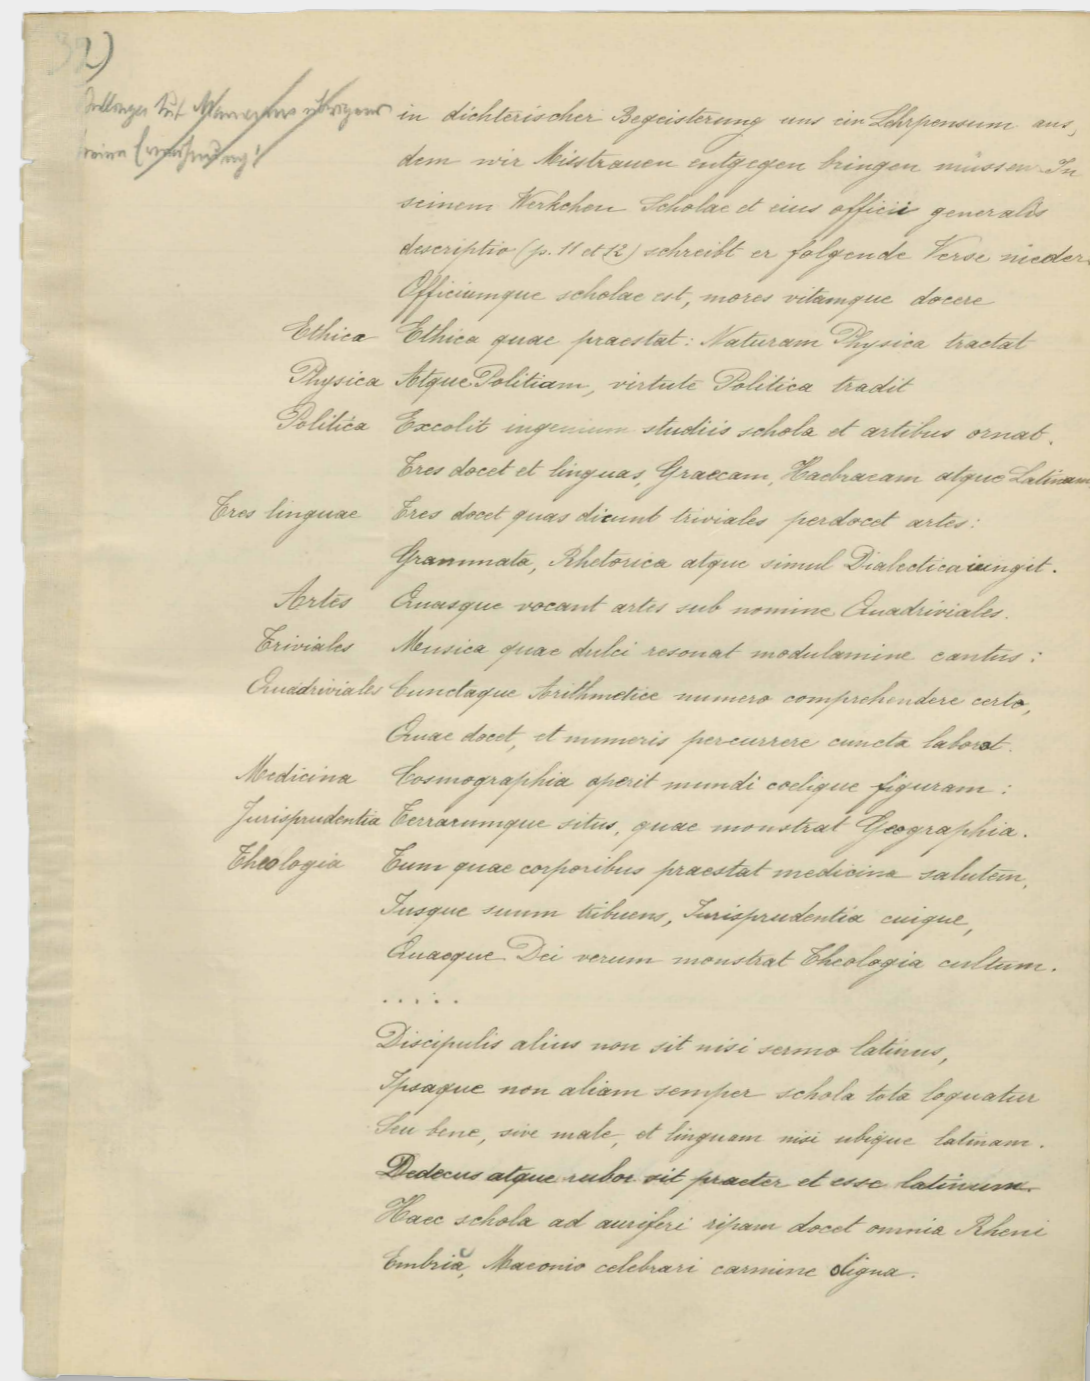 32)
in dichterischer Begeisterung uns ein Lehrpensum aus,
dem wir Misstrauen entgegen bringen müssen. In
seinem Werkchen Scholae et eius officii generalis
descriptio (p. 11 et 12) schreibt er folgende Verse nieder.
Officiumque scholae est, mores vitamque docere
Ethica Ethica quae praestat: Naturam Physica tractat
Physica Atque Politiam, virtute Politica tradit
Politica Excolit ingenium studiis schola et artibus ornat.
Tres docet et linguas, Graecam, Haebraeam atque Latinam
Tres linguae Tres docet quas dicunt triviales perdocet artes:
Grammata, Rhetorica atque simul Dialectica iungit.
Artes Quasque vocant artes sub nomine Quadriviales.
Triviales Musica quae dulci resonat modulamine cantus:
Quadriviales Cunctaque Arithmetice numero comprehendere certo,
Quae docet, et numeris percurrere cuncta laborat.
Medicina Cosmographia aperit mundi coelique figuram:
Jurisprudentia Terrarumque situs, quae monstrat Geographia.
Theologia Tum quae corporibus praestat medicina salutem,
Jusque suum tribuens, Jurisprudentia cuique,
Quaeque Dei verum monstrat Theologia cultum.
.....
Discipulis alius non sit nisi sermo latinus,
Ipsaque non aliam semper schola tota loquatur
Seu bene, sive male, et linguam nisi ubique latinam.
Dedecus atque rubor sit praeter et esse latinum.
Haec schola ad auriferi ripam docet omnia Rheni
Embria, Maeonio celebrari carmine digna.